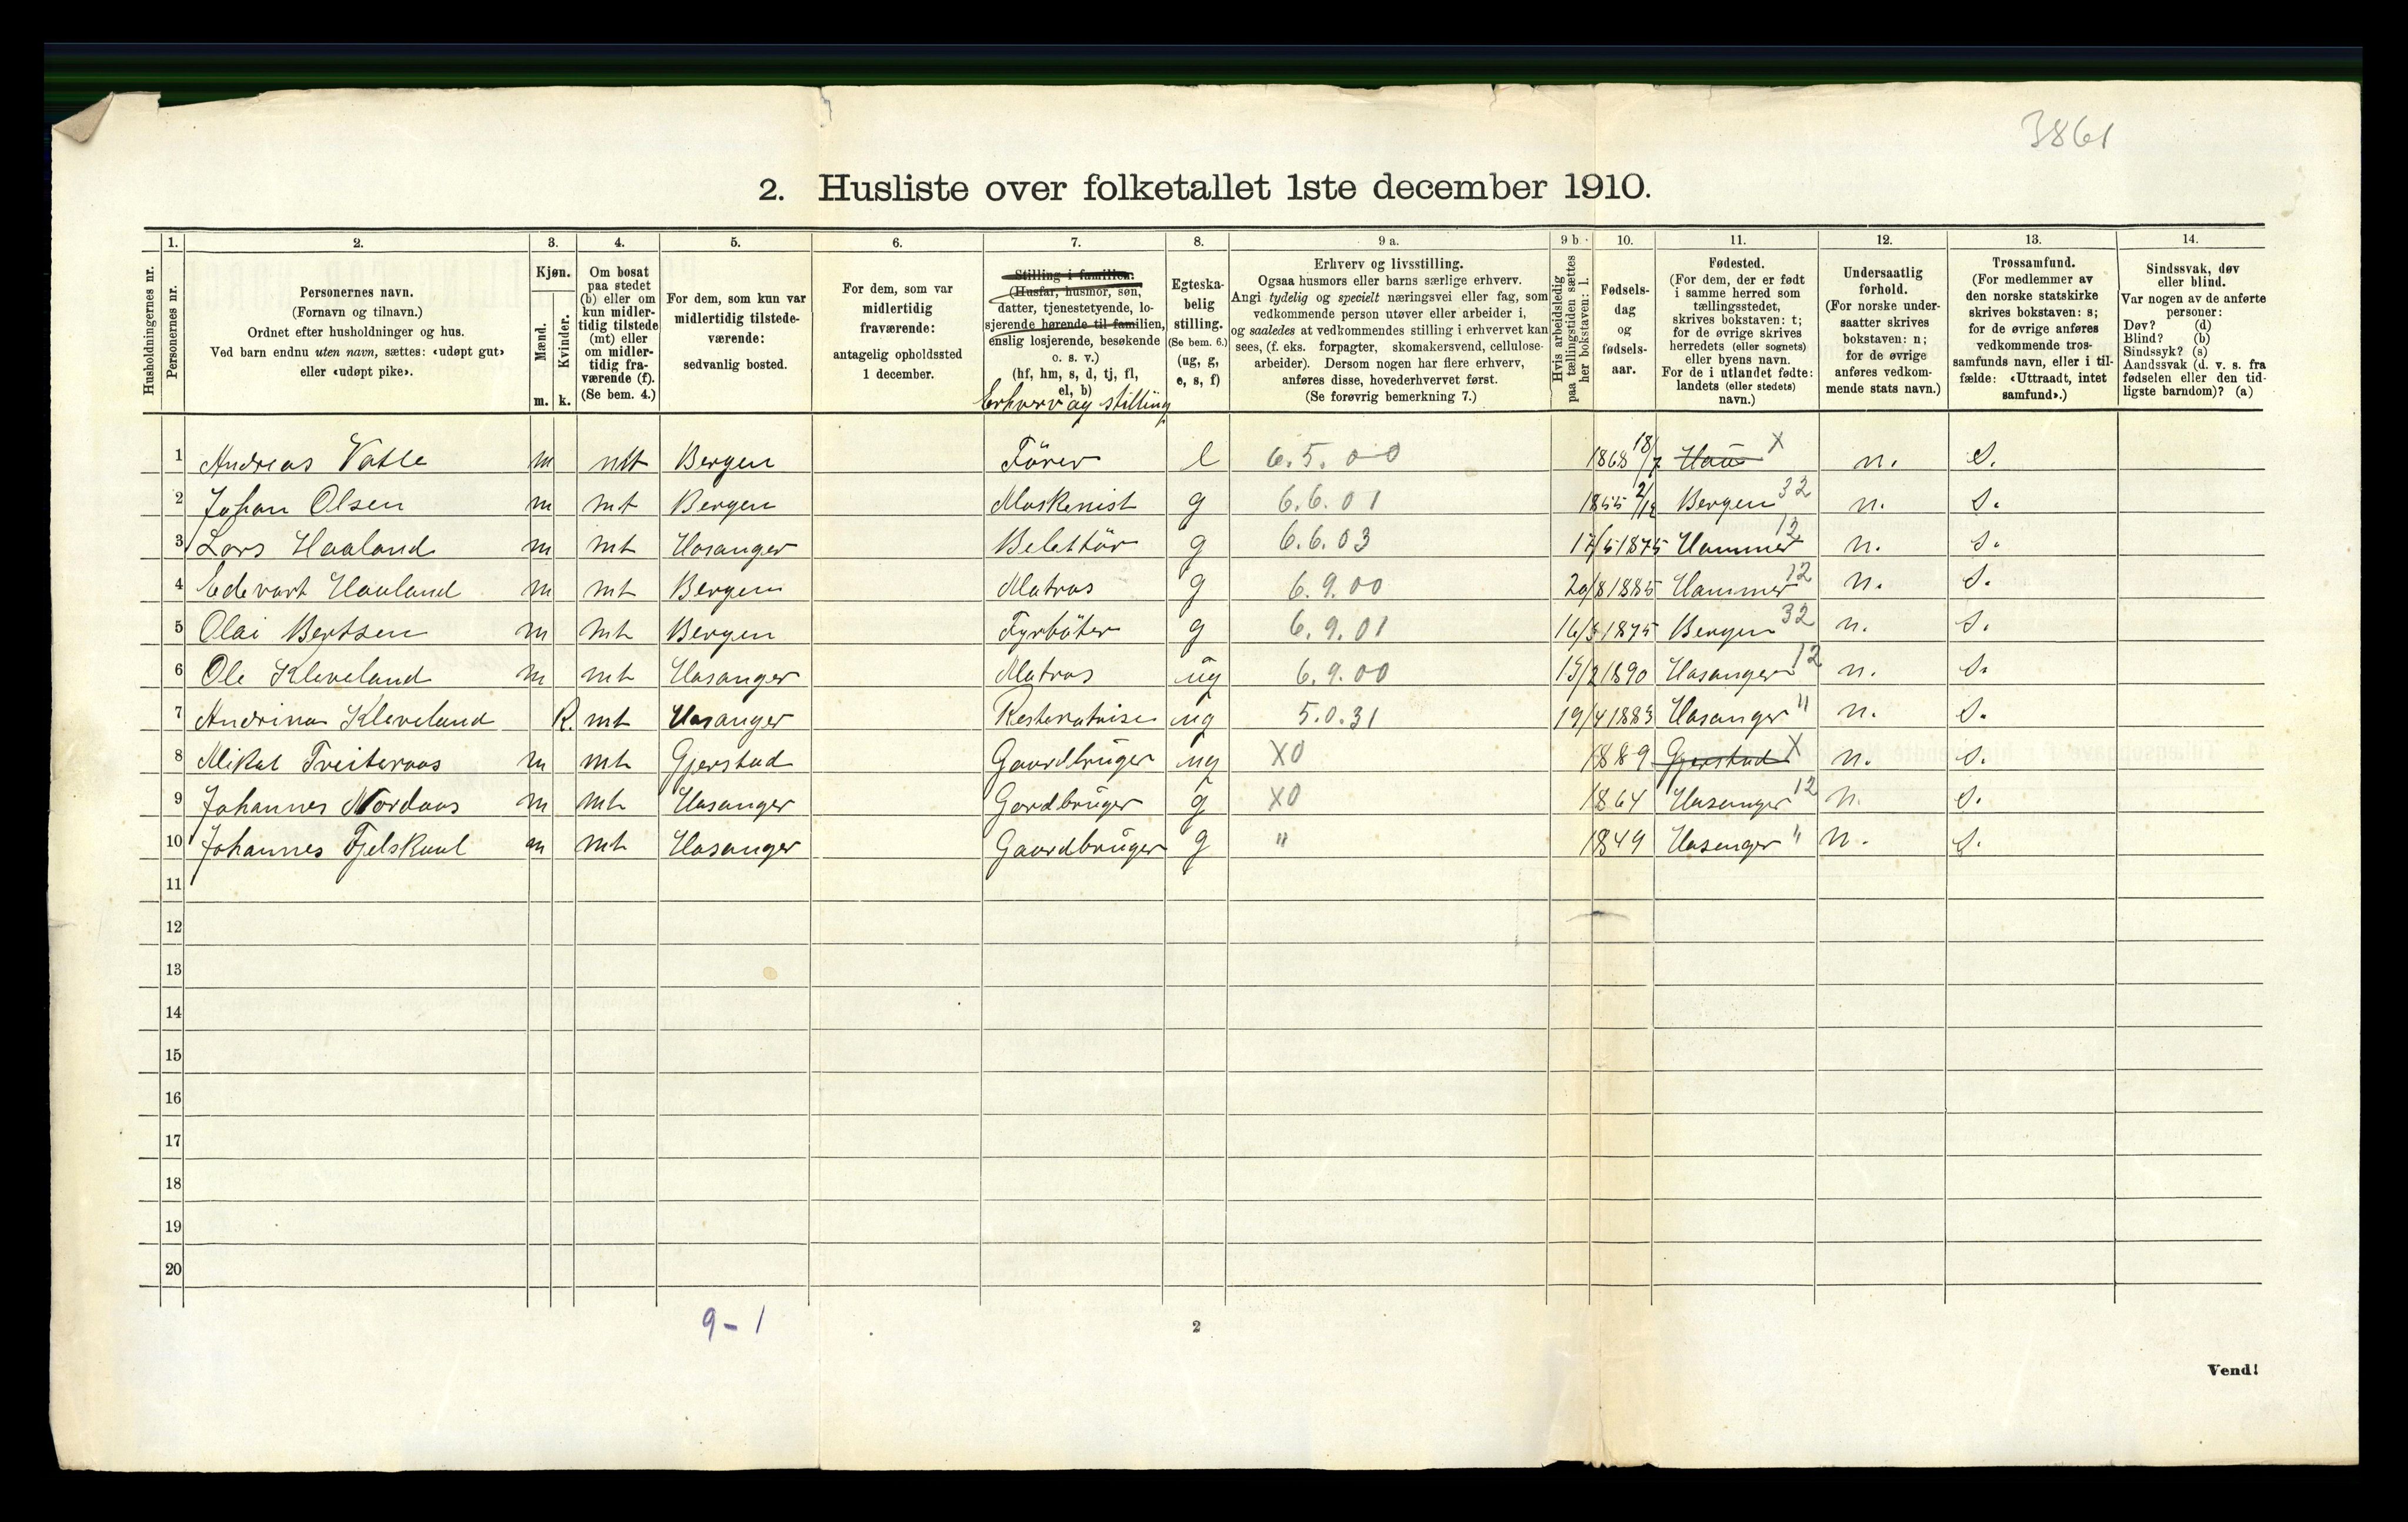 3861
2. Husliste over folketallet 1ste december 1910.
1. 2. 3. 4. 5. 6. 7. 8. 9 a. 9 b. 10. 11. 12. 13. 14.
Husholdningernes nr.
Personernes nr.
Personernes navn.
(Fornavn og tilnavn.)
Ordnet efter husholdninger og hus.
Ved barn endnu uten navn, sættes: «udøpt gut»
eller «udøpt pike».
Kjøn.
Mænd.
Kvinder.
m. k.
Om bosat
paa stedet
(b) eller om
kun midler-
tidig tilstede
(mt) eller
om midler-
tidig fra-
værende (f).
(Se bem. 4.)
For dem, som kun var
midlertidig tilstede-
værende:
sedvanlig bosted.
For dem, som var
midlertidig
fraværende:
antagelig opholdssted
1 december.
Stilling i familien.
(Husfar, husmor, søn,
datter, tjenestetyende, lo-
sjerende hørende til familien,
enslig losjerende, besøkende
o. s. v.)
(hf, hm, s, d, tj, fl,
el, b)
Erhverv og stilling
Egteska-
belig
stilling.
(Se bem. 6.)
(ug, g,
e, s, f)
Erhverv og livsstilling.
Ogsaa husmors eller barns særlige erhverv.
Angi tydelig og specielt næringsvei eller fag, som
vedkommende person utøver eller arbeider i,
og saaledes at vedkommendes stilling i erhvervet kan
sees, (f. eks. forpagter, skomakersvend, cellulose-
arbeider). Dersom nogen har flere erhverv,
anføres disse, hovederhvervet først.
(Se forøvrig bemerkning 7.)
Hvis arbeidsledig
paa tællingstiden sættes
her bokstaven: l.
Fødsels-
dag
og
fødsels-
aar.
Fødested.
(For dem, der er født
i samme herred som
tællingsstedet,
skrives bokstaven: t;
for de øvrige skrives
herredets (eller sognets)
eller byens navn.
For de i utlandet fødte:
landets (eller stedets)
navn.)
Undersaatlig
forhold.
(For norske under-
saatter skrives
bokstaven: n;
for de øvrige
anføres vedkom-
mende stats navn.)
Trossamfund.
(For medlemmer av
den norske statskirke
skrives bokstaven: s;
for de øvrige anføres
vedkommende tros-
samfunds navn, eller i til-
fælde: «Uttraadt, intet
samfund».)
Sindssvak, døv
eller blind.
Var nogen av de anførte
personer:
Døv? (d)
Blind? (b)
Sindssyk? (s)
Aandssvak (d. v. s. fra
fødselen eller den tid-
ligste barndom)? (a)
1 Andreas Vatle m mt Bergen Förer e 6.5.00 1868 18/7 Haus X n. S.
2 Johan Olsen m mt Bergen Maskenist g 6.6.01 1855 2/12 Bergen 32 n. S.
3 Lars Haaland m mt Hosanger Belettör g 6.6.03 17/5 1875 Hammer 12 n. S.
4 Edevart Haaland m mt Bergen Matros g 6.9.00 20/8 1885 Hammer 12 n. S.
5 Olai Bertsen m mt Bergen Fyrböter g 6.9.01 16/3 1875 Bergen 32 n. S.
6 Ole Kleveland m mt Hosanger Matros ug 6.9.00 15/2 1890 Hosanger 12 n. S.
7 Andrina Kleveland K. mt Hosanger ug 5.0.31 19/4 1883 Hosanger " n. S.
8 Mikal Treiteraas m mt Gjerstad Gaardbruger ug XO 1889 Gjerstad X n. S.
9 Johannes Nordaas m mt Hosanger Gardbruger g XO 1864 Hosanger 12 n. S.
10 Johannes Fjelskaal m mt Hosanger Gaardbruger g " 1849 Hosanger " n. S.
11
12
13
14
15
16
17
18
19
20
9 - 1
2
Vend!